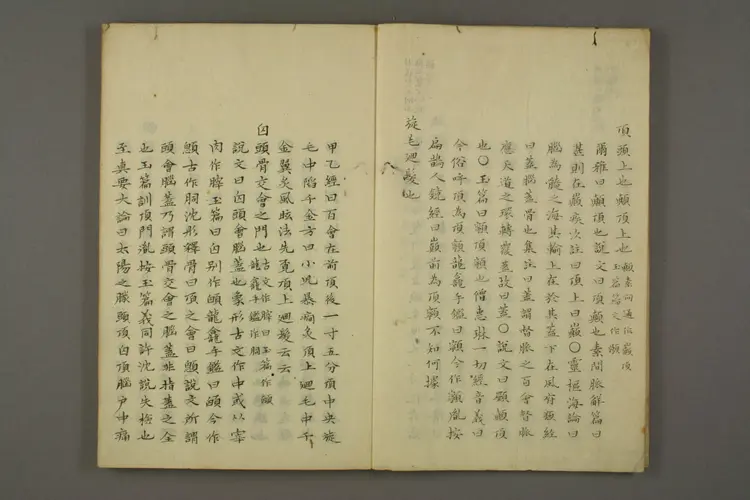 頂頭上也顛頂上也顛素問通作巓頂
玉篇篇文作顁
爾雅曰顛頂也說文曰頂顛也素問脉解篇曰
甚則在巓疾次註曰頂上曰巓〇靈樞海論曰
腦為髓之海其輸上在於其蓋下在風府類經
曰蓋腦蓋骨也集註曰蓋謂督脉之百會督脉
應天道之環轉覆蓋故曰蓋〇說文曰顛頂
也〇玉篇曰頂顛也僧惠琳一切經音義曰
今俗呼頂為頂顛龍龕手鑑曰顛今作顛胤按
扁鵲人鏡經曰巓前為頂顛不知何據
旋毛廻髮也
甲乙經曰百會在前頂後一寸五分頂中央旋
毛中陷千金方曰小兒暴癇灸頂上廻毛中千
金翼灸風眩法先覓頂上廻髮云云
囟
頭骨交會之門也古文作脺曰玉篇作顖
龍龕手鑑作䪿
說文曰囟頭會腦蓋也象形古文作中或从宰
肉作脺玉篇曰囟別作顖龍龕手鑑曰䪿今作
顖古作䪿沈彤釋骨曰頂之會曰顖說文所謂
頭會腦蓋乃謂頭骨交會之腦蓋非持蓋之全
也玉篇訓頂門胤按玉篇義同許沈說失檢也
至真要大論曰太陽之朦頭頂囟頂腦戶中痛